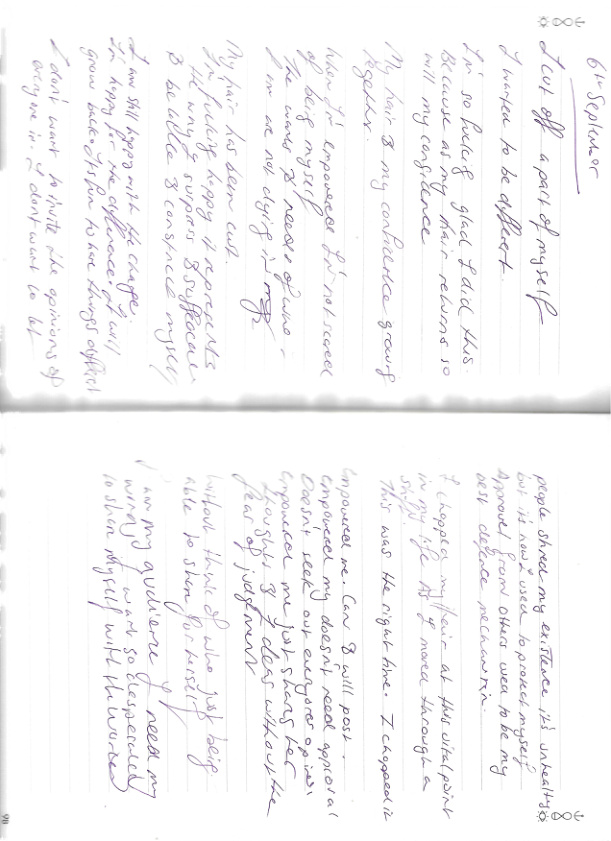 6th September
I cut off a part of myself
I wanted to be different.
I'm so fucking glad I did this.
Because as my hair returns so
will my confidence
My hair & my confidence growing
together.
When I'm empowered I'm not scared
of being myself
The wants & needs of who
I am are not dying in me
My hair has been cut.
I'm fucking happy it represents
the way I support &
& be able & construct myself
I am still happy with the change.
I'm happy for the difference. It will
grow back. Its fun to have things different
I don't want to invite the opinions of
everyone in. I don't want to let
people shred my existence, it's unhealthy
but is how I used to protect myself
Approval from others used to be my
best defence mechanism.
I chopped my hair at this vital point
in my life As I moved through a
shift.
This was the right time. I chopped it
Empowered me. Can & will post.
empowered my doesn't need approval
Doesn't seek out everyones opinion
empowered me just shares her
thoughts & Ideas without the
fear of judgment
without think of who just being
able to share for herself
I am my audience I need my
words I want so desperately
to share myself with the world
98